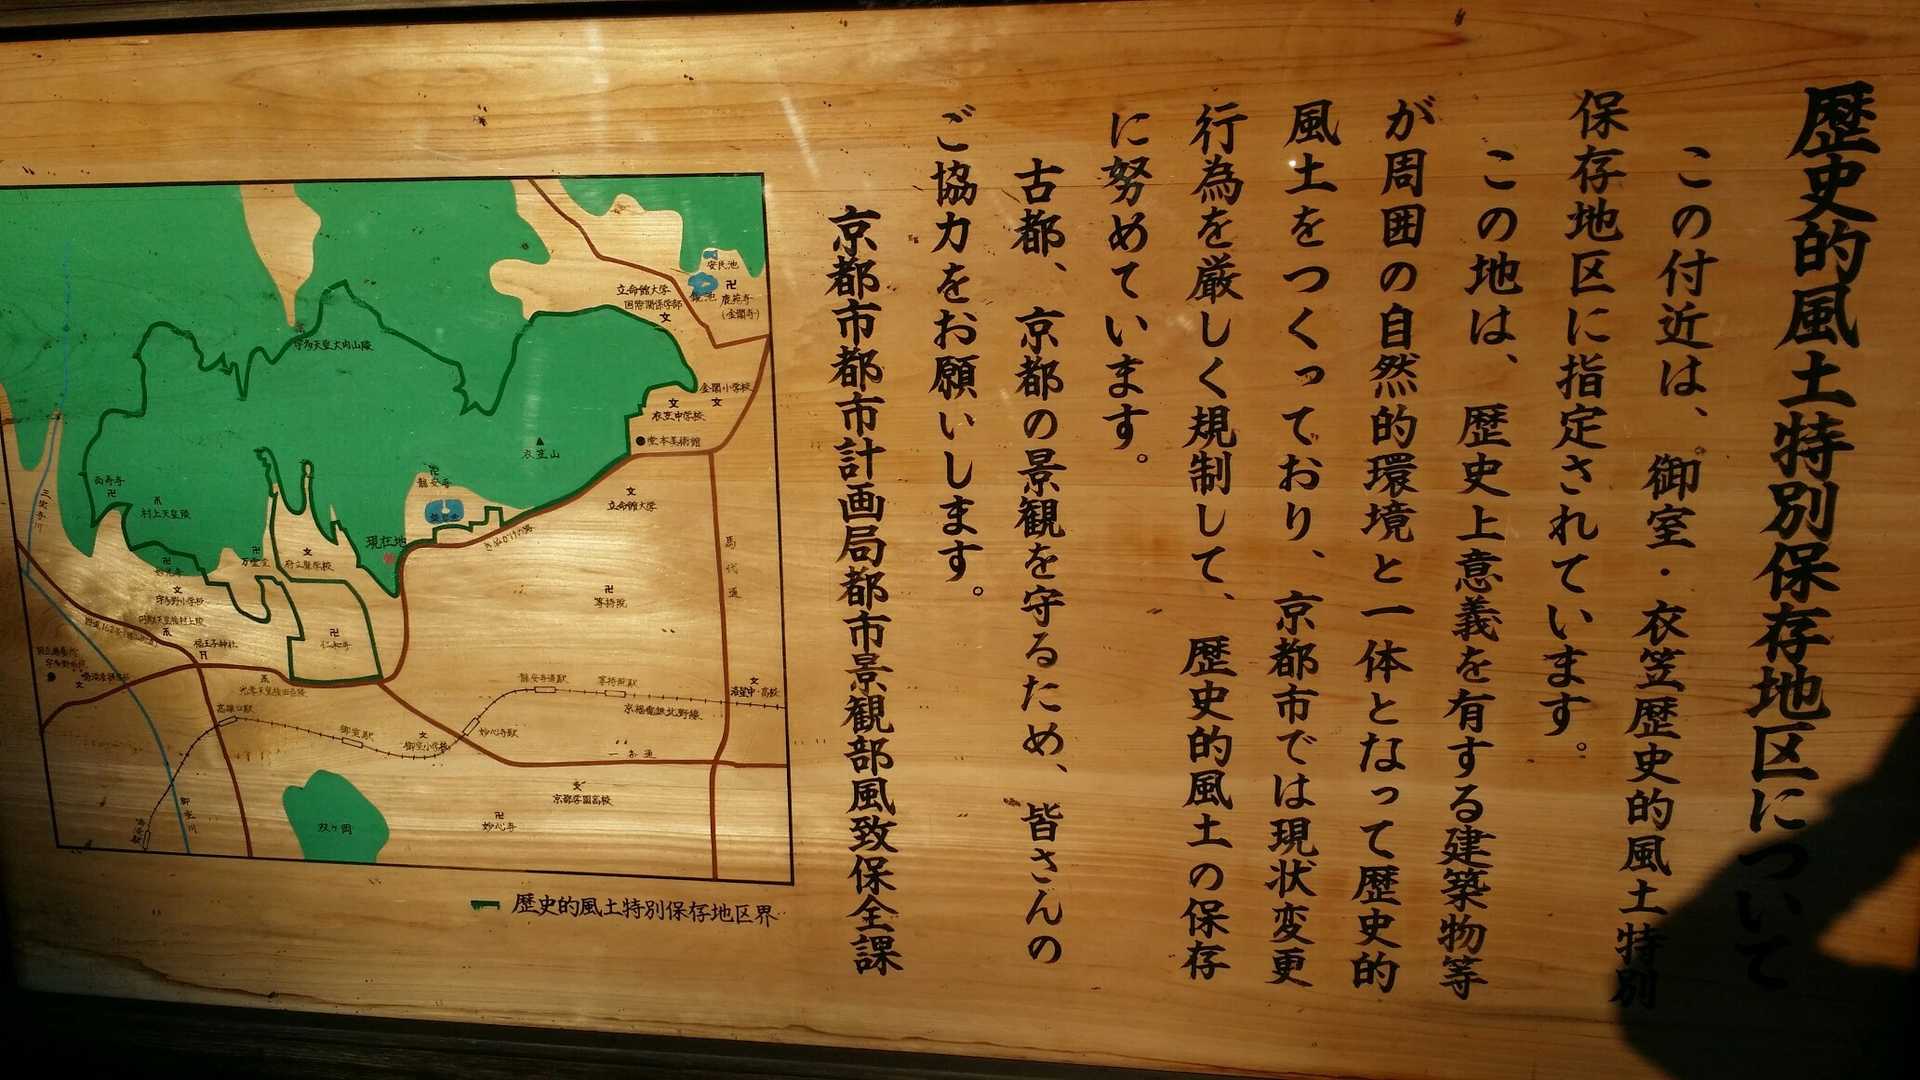 歴史的風土特別保存地区について
この付近は、御室・衣笠歴史的風土特別
保存地区に指定されています。
この地は、歴史上意義を有する建築物等
が周囲の自然的環境と一体となって歴史的
風土をつくっており、京都市では現状変更
行為を厳しく規制して、歴史的風土の保存
に努めています。
古都、京都の景観を守るため、皆さんの
ご協力をお願いします。
京都市都市計画局都市景観部風致保全課
安民池
鏡池
鹿苑寺
(金閣寺)
立命館大学
国際関係学部
宇多天皇大内山陵
金閣小学校
衣笠中学校
堂本美術館
衣笠山
龍安寺
立命館大学
きぬかけの路
村上天皇陵
三宝寺川
現在地
馬代通
妙光寺
宇多野小学校
等持院
仁和寺
福王子神社
龍安寺道駅
等持院駅
京福電鉄北野線
高雄口駅
御室駅
御室小学校
妙心寺駅
一条通
京都学園高校
妙心寺
双ヶ岡
御室川
鳴滝駅
歴史的風土特別保存地区界